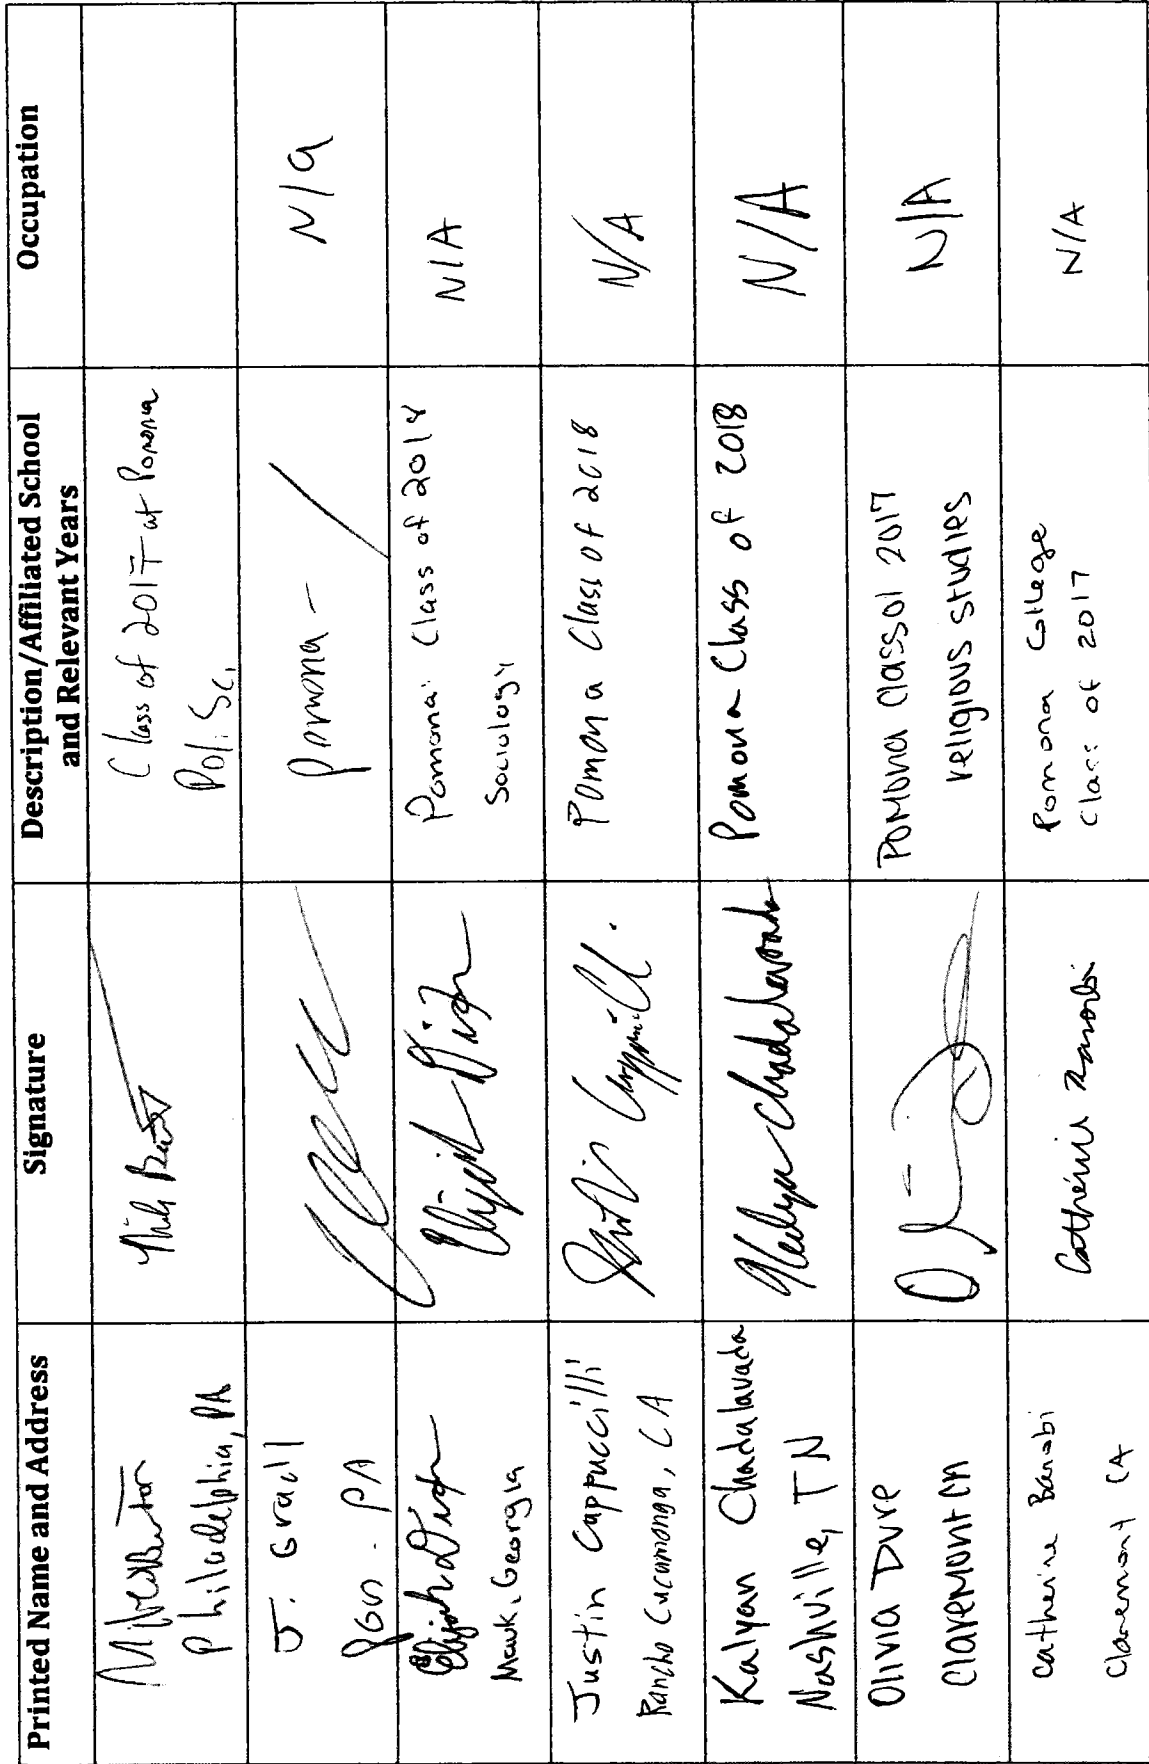 Printed Name and Address
Signature
Description/Affiliated School
and Relevant Years
Occupation
Philadelphia, PA
Class of 2017 at Pomona
Poli Sci,
J. Gracll
PA
Pomona -
N/a
Elijah
Georgia
Elijah
Pomona: Class of 2018
Sociology
N/A
Justin Cappuccilli
Rancho Cucamonga, CA
Justin
Pomona Class of 2018
N/A
Kalyan Chadalavada
Nashville, TN
Kalyan Chadalavada
Pomona Class of 2018
N/A
Olivia Dure
Claremont CA
Pomona Class of 2017
religious studies
N/A
Catherine
Claremont CA
Catherine
Pomona College
Class of 2017
N/A